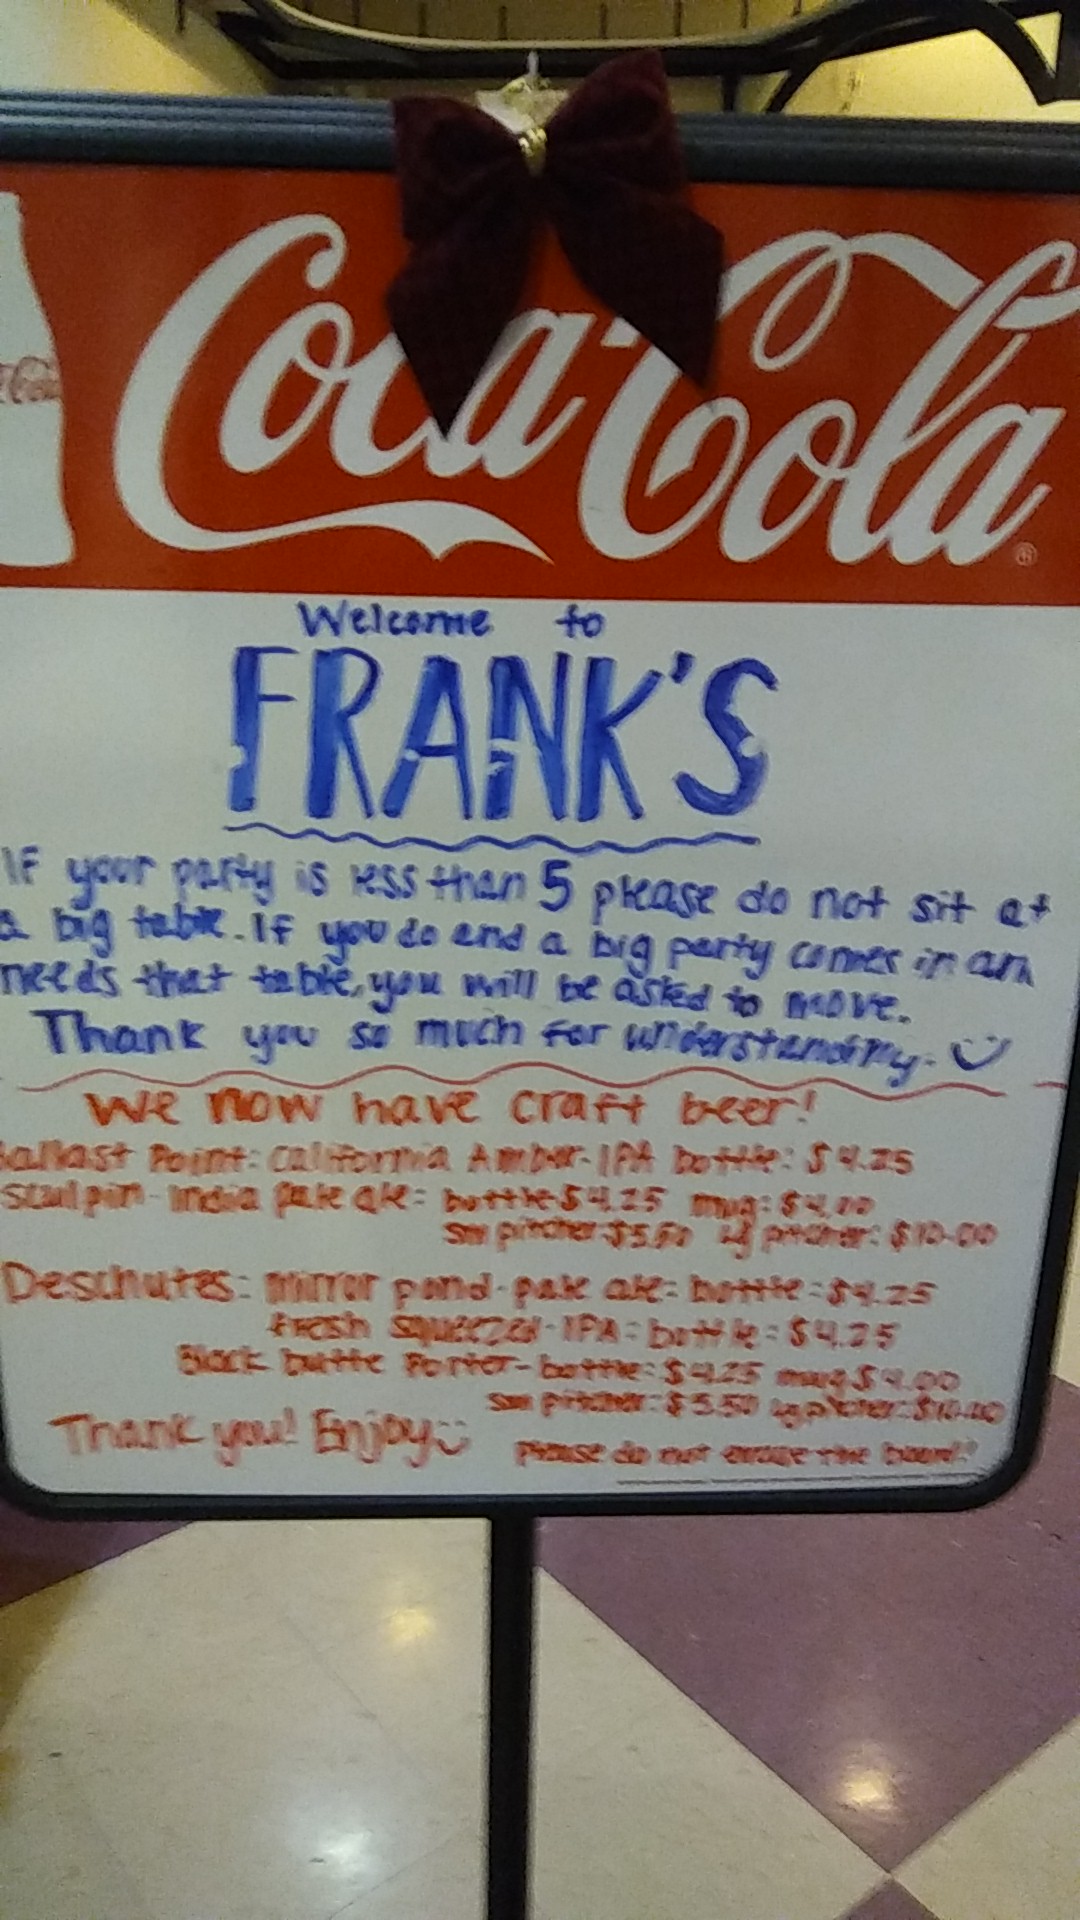 Coca-Cola
Welcome to
FRANK'S
If your party is less than 5 please do not sit at
a big table. If you do and a big party comes in and
needs that table, you will be asked to move.
Thank you so much for understanding.
We now have craft beer!
Ballast Point: California Amber-IPA bottle: $4.25
Sculpin-India pale ale: bottle $4.25 mug: $4.00
sm pitcher $5.50 lg pitcher: $10.00
Deschutes: mirror pond-pale ale: bottle: $4.25
fresh squeezed-IPA: bottle: $4.25
Black butte Porter-bottle: $4.25 mug $4.00
sm pitcher: $5.50 lg pitcher: $10.00
Thank you! Enjoy
Please do not erase the board!